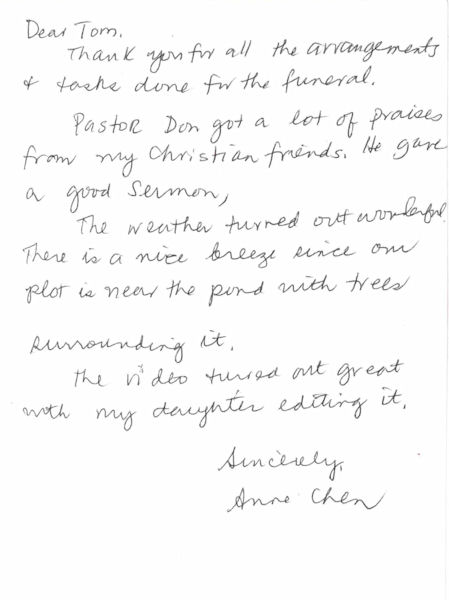 Dear Tom,
Thank you for all the arrangements
& tasks done for the funeral.
Pastor Don got a lot of praises
from my Christian friends. He gave
a good sermon,
The weather turned out wonderful.
There is a nice breeze since our
plot is near the pond with trees
surrounding it.
The video turned out great
with my daughter editing it.
Sincerely,
Anne Chen